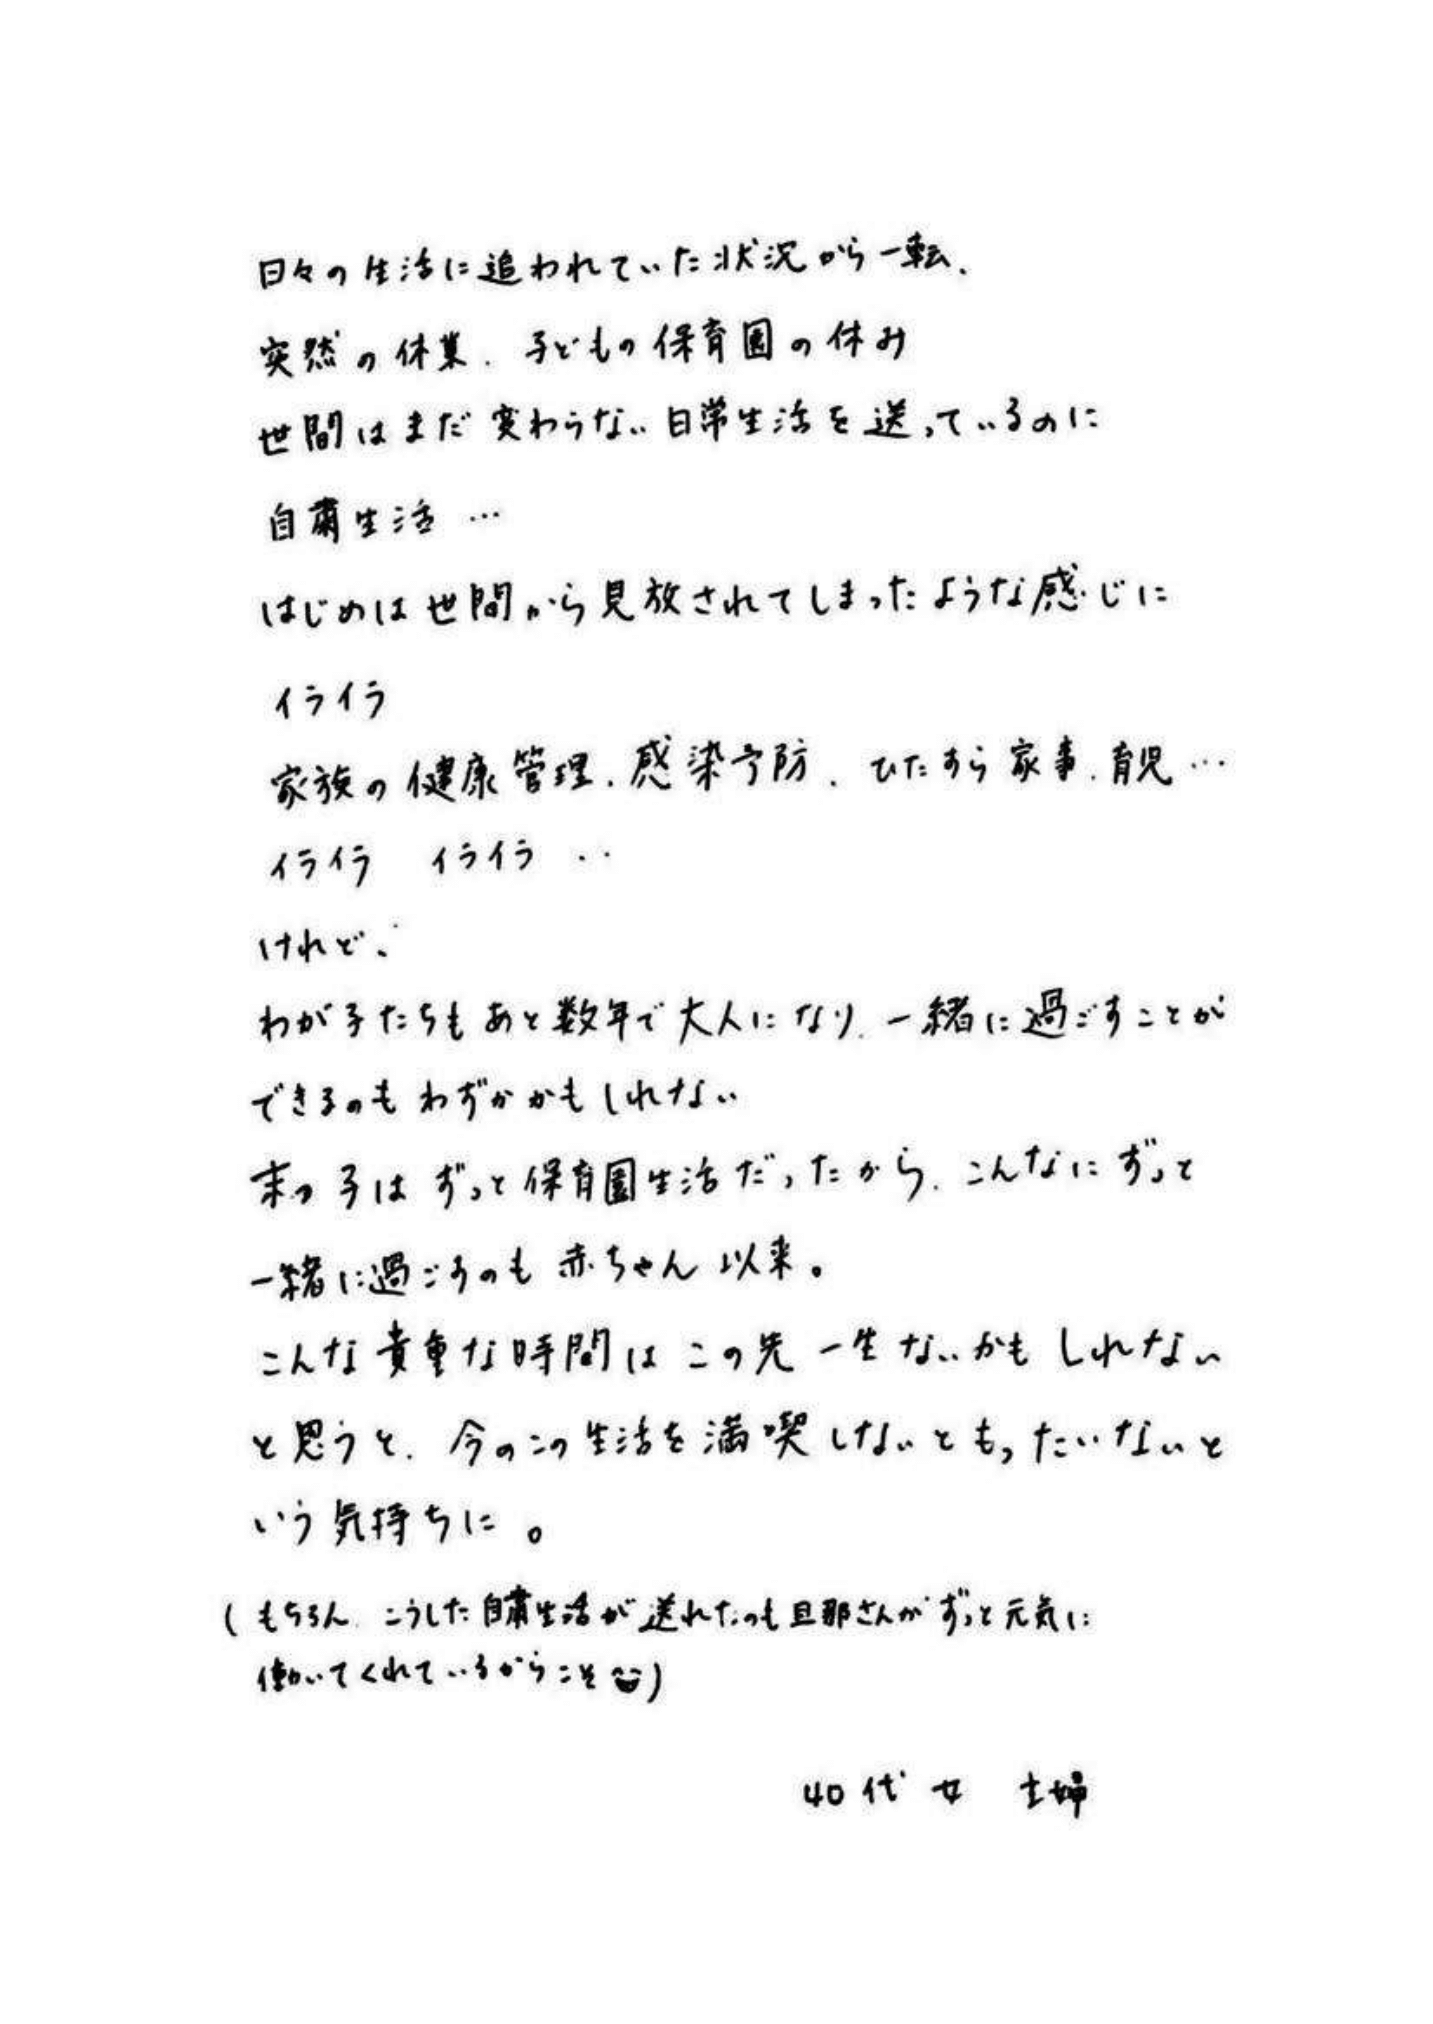 日々の生活に追われていた状況から一転、
突然の休業、子どもの保育園の休み
世間はまだ変わらない日常生活を送っているのに
自粛生活 …
はじめは世間から見放されてしまったような感じに
イライラ
家族の健康管理、感染予防、ひたすら家事、育児…
イライラ イライラ ‥
けれど、
わが子たちもあと数年で大人になり、一緒に過ごすことが
できるのもわずかかもしれない
末の子はずっと保育園生活だったから、こんなにずっと
一緒に過ごすのも赤ちゃん以来。
こんな貴重な時間はこの先一生ないかもしれない
と思うと、今のこの生活を満喫しないともったいないと
いう気持ちに。
(もちろん、こうした自粛生活が送れたのも旦那さんがずっと元気に
働いてくれているからこそ😄)
40代 女 主婦